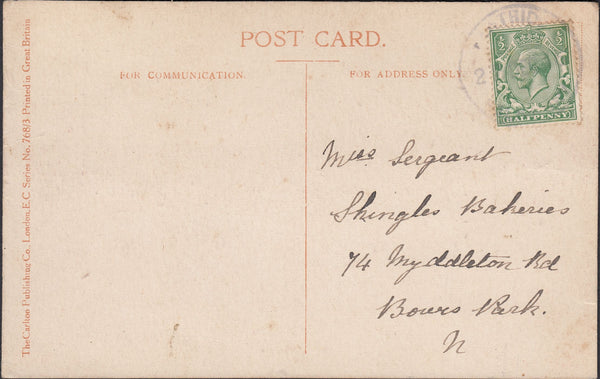 POST CARD.
FOR COMMUNICATION.
FOR ADDRESS ONLY.
½ ½
HALFPENNY
Miss Sergeant
Shingles Bakeries
74 Myddleton Rd
Bowes Park.
N
The Carlton Publishing Co., London, E.C. Series No. 768/3 Printed in Great Britain